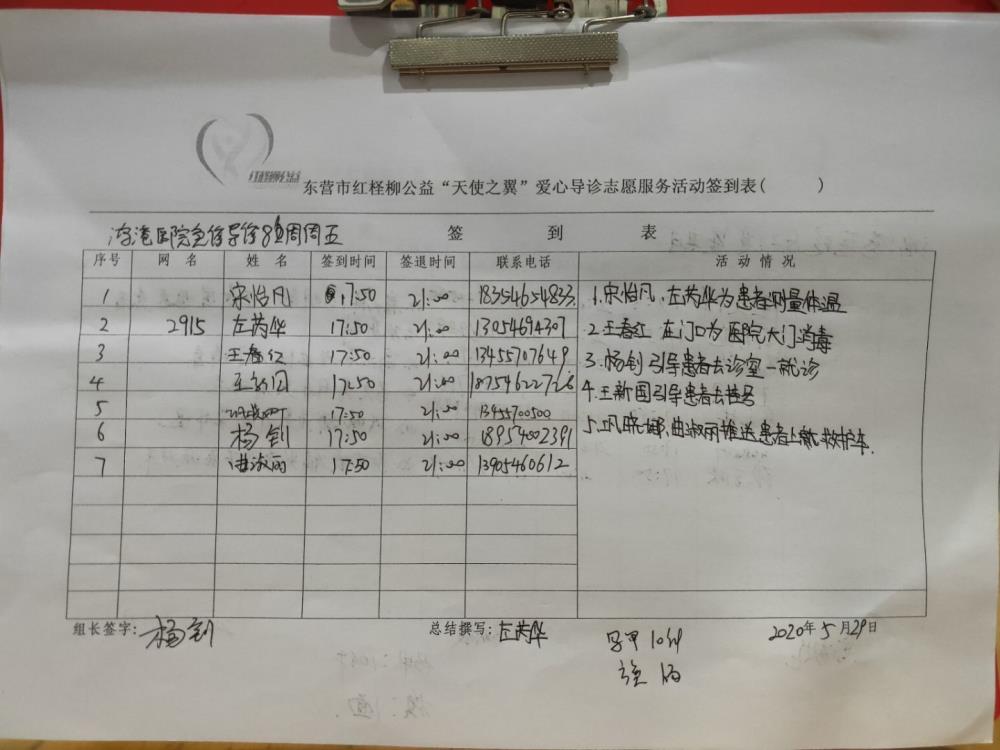 红柽柳公益
东营市红柽柳公益“天使之翼”爱心导诊志愿服务活动签到表( )
医院 周周五
签 到 表
序号 网 名 姓 名 签到时间 签退时间 联系电话 活 动 情 况
1 宋怡凡 17:50 21:00 18354654833
2 2915 左芮华 17:50 21:00 13054694307
3 王春红 17:50 21:00 13455707649
4 王新国 17:50 21:00
5 17:50 21:00 13455700500
6 杨钊 17:50 21:00 18954002391
7 曲淑丽 17:50 21:00 13905460612
1.宋怡凡、左芮华为患者测量体温
2.王春红 在门口为医院大门消毒
3.杨钊引导患者去诊室一就诊
4.王新国引导患者去挂号
5.巩晓娜,曲淑丽推送患者上 救护车.
组长签字: 杨钊
总结撰写: 左芮华
2020年5月29日